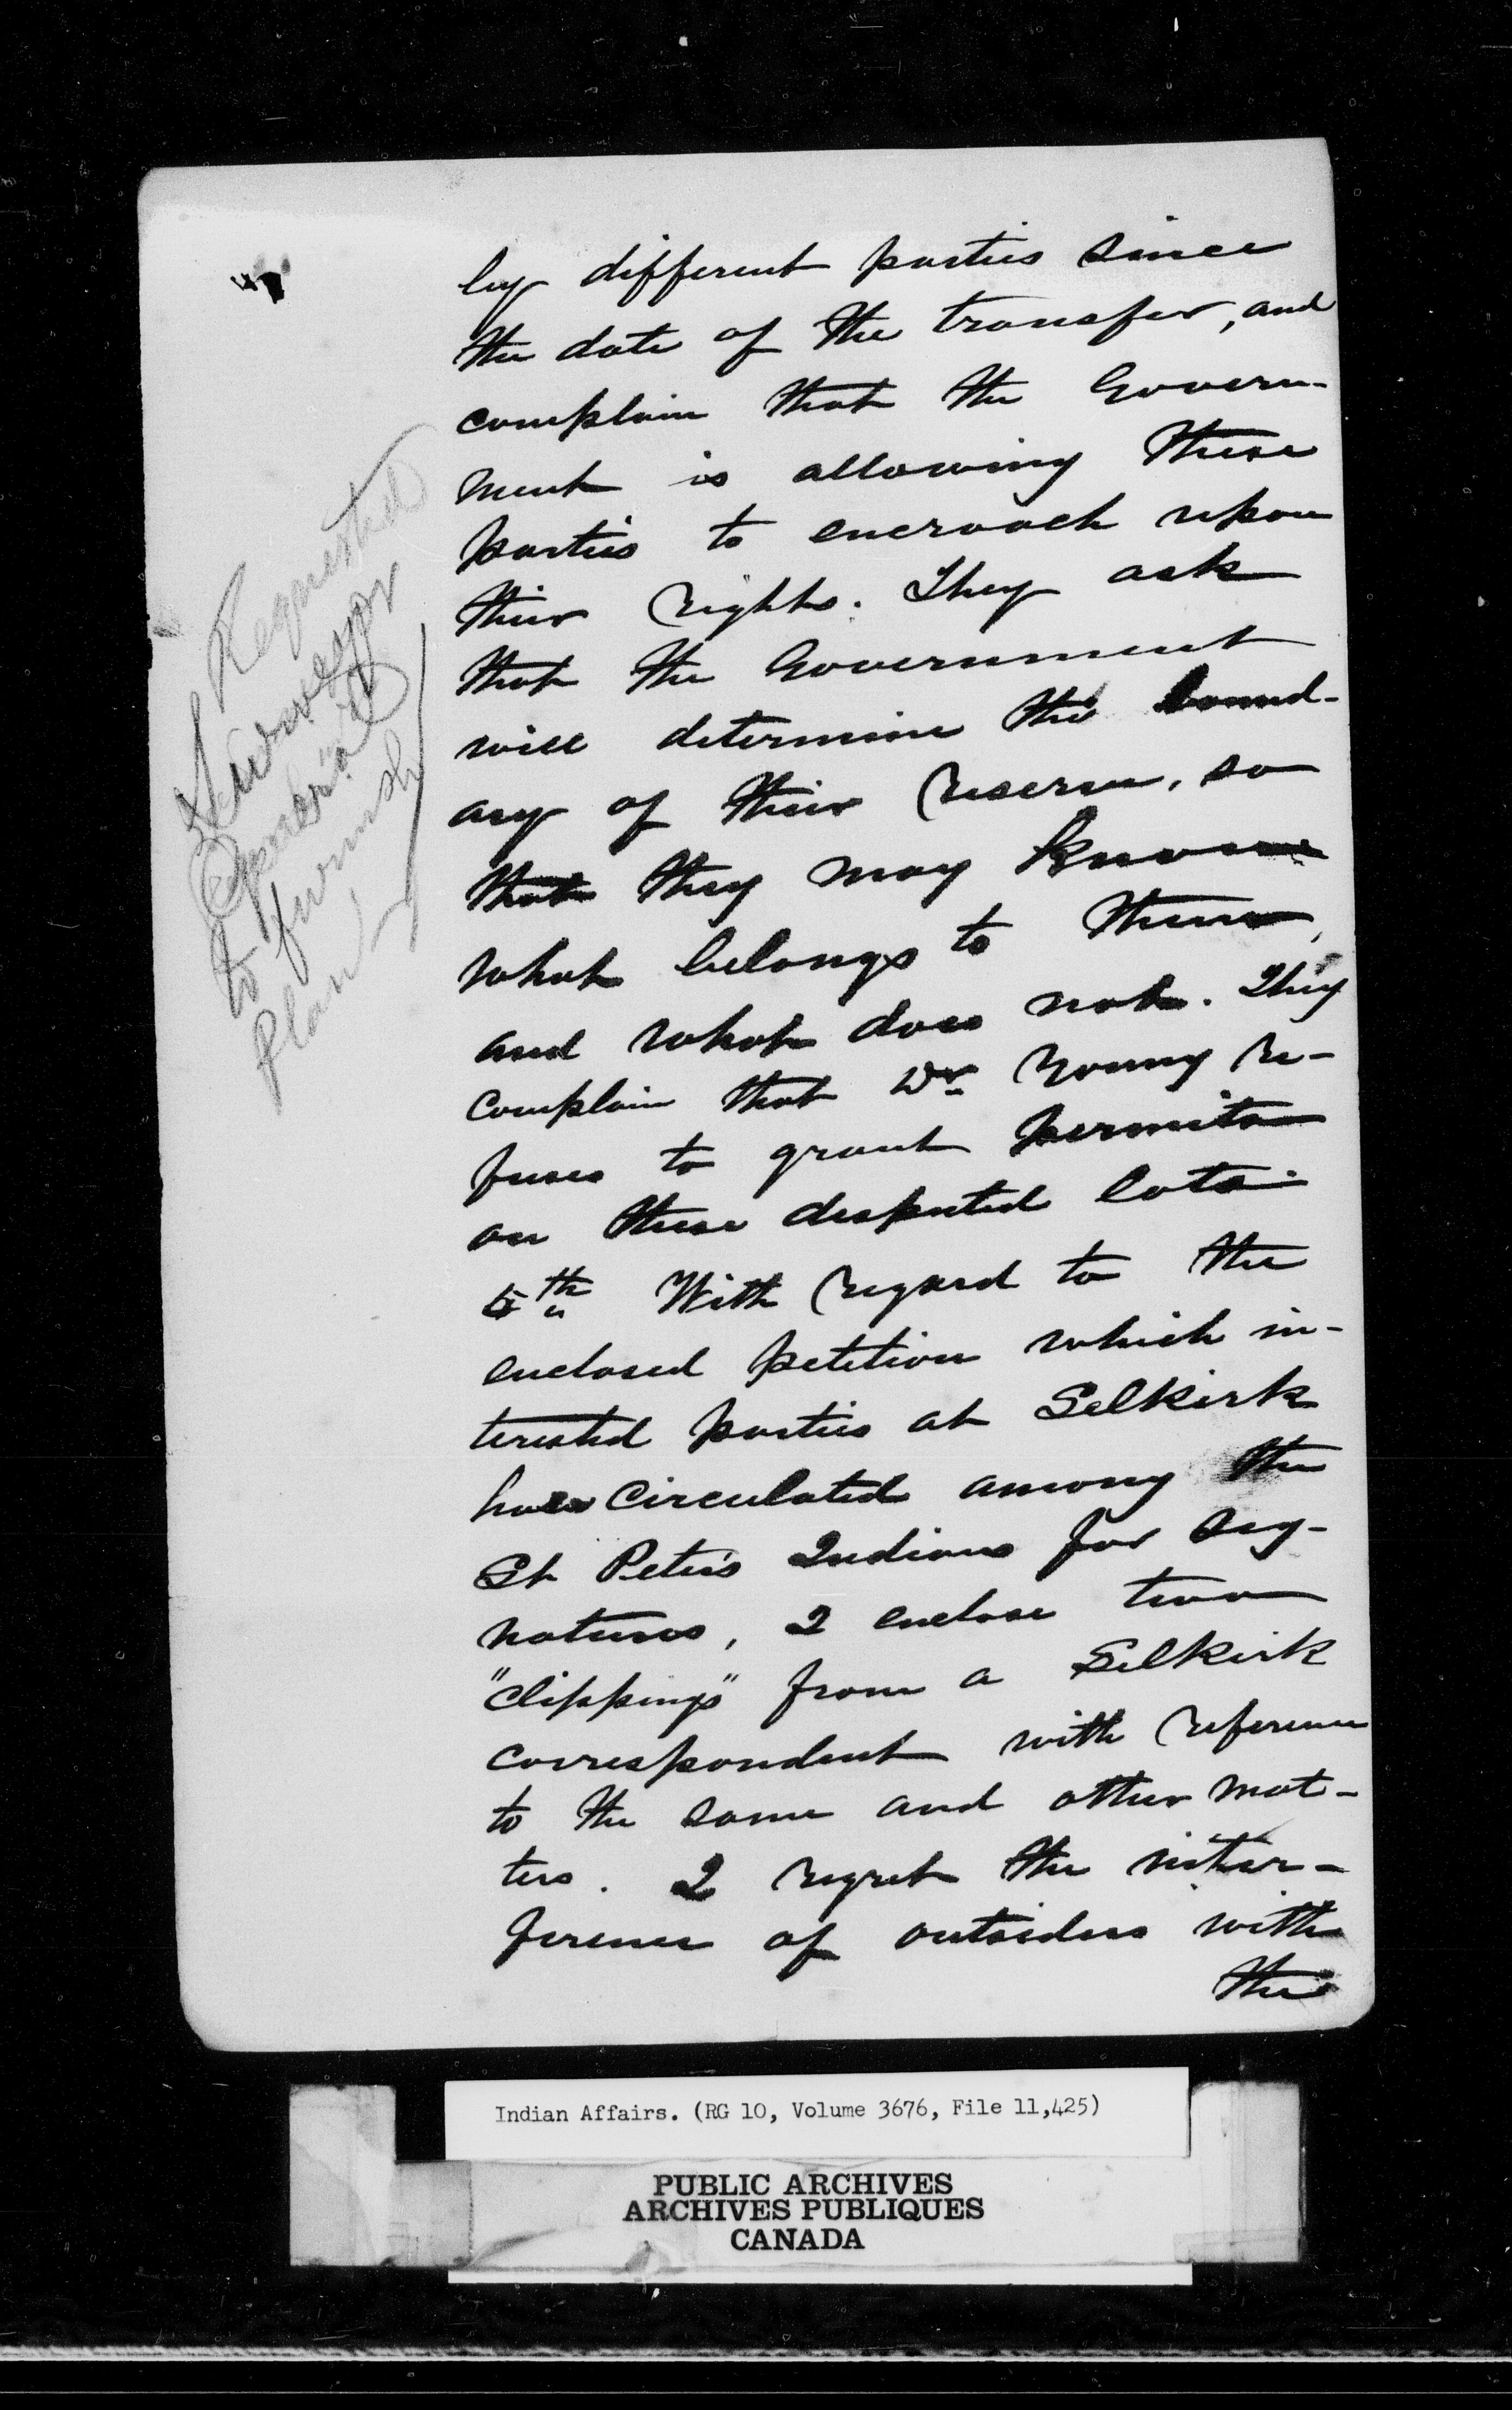 by different parties since
the date of the transfer, and
complain that the Govern-
ment is allowing these
parties to encroach upon
their rights. They ask
that the Government
will determine the bound-
ary of their reserve, so
that they may know
what belongs to them,
and what does not. They
complain that Dr Young re-
fuses to grant permits
on these disputed lots.
5th With regard to the
enclosed petition which in-
terested parties at Selkirk
have circulated among the
St Peter's Indians for sig-
natures, I enclose two
"clippings" from a Selkirk
correspondent with reference
to the same and other mat-
ters. I regret the inter-
ference of outsiders with
the
Requested
Surveyor
General
to furnish
plan
Indian Affairs. (RG 10, Volume 3676, File 11,425)
PUBLIC ARCHIVES
ARCHIVES PUBLIQUES
CANADA